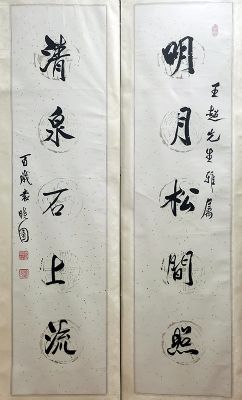 王超先生雅屬
明月松間照
清泉石上流
百歲袁曉園